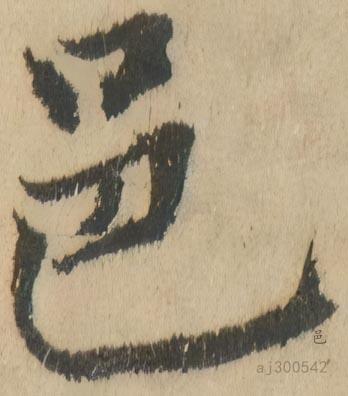 邑
邑
aj300542